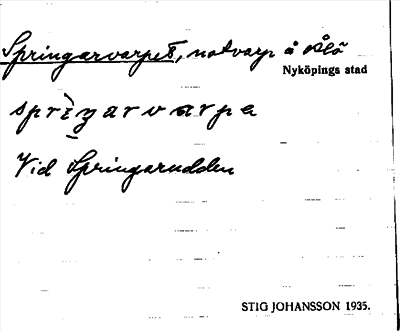 Springarvarpet, notvarp å Ålö
Nyköpings stad
sprìŋarvarpe
Vid Springarudden
STIG JOHANSSON 1935.